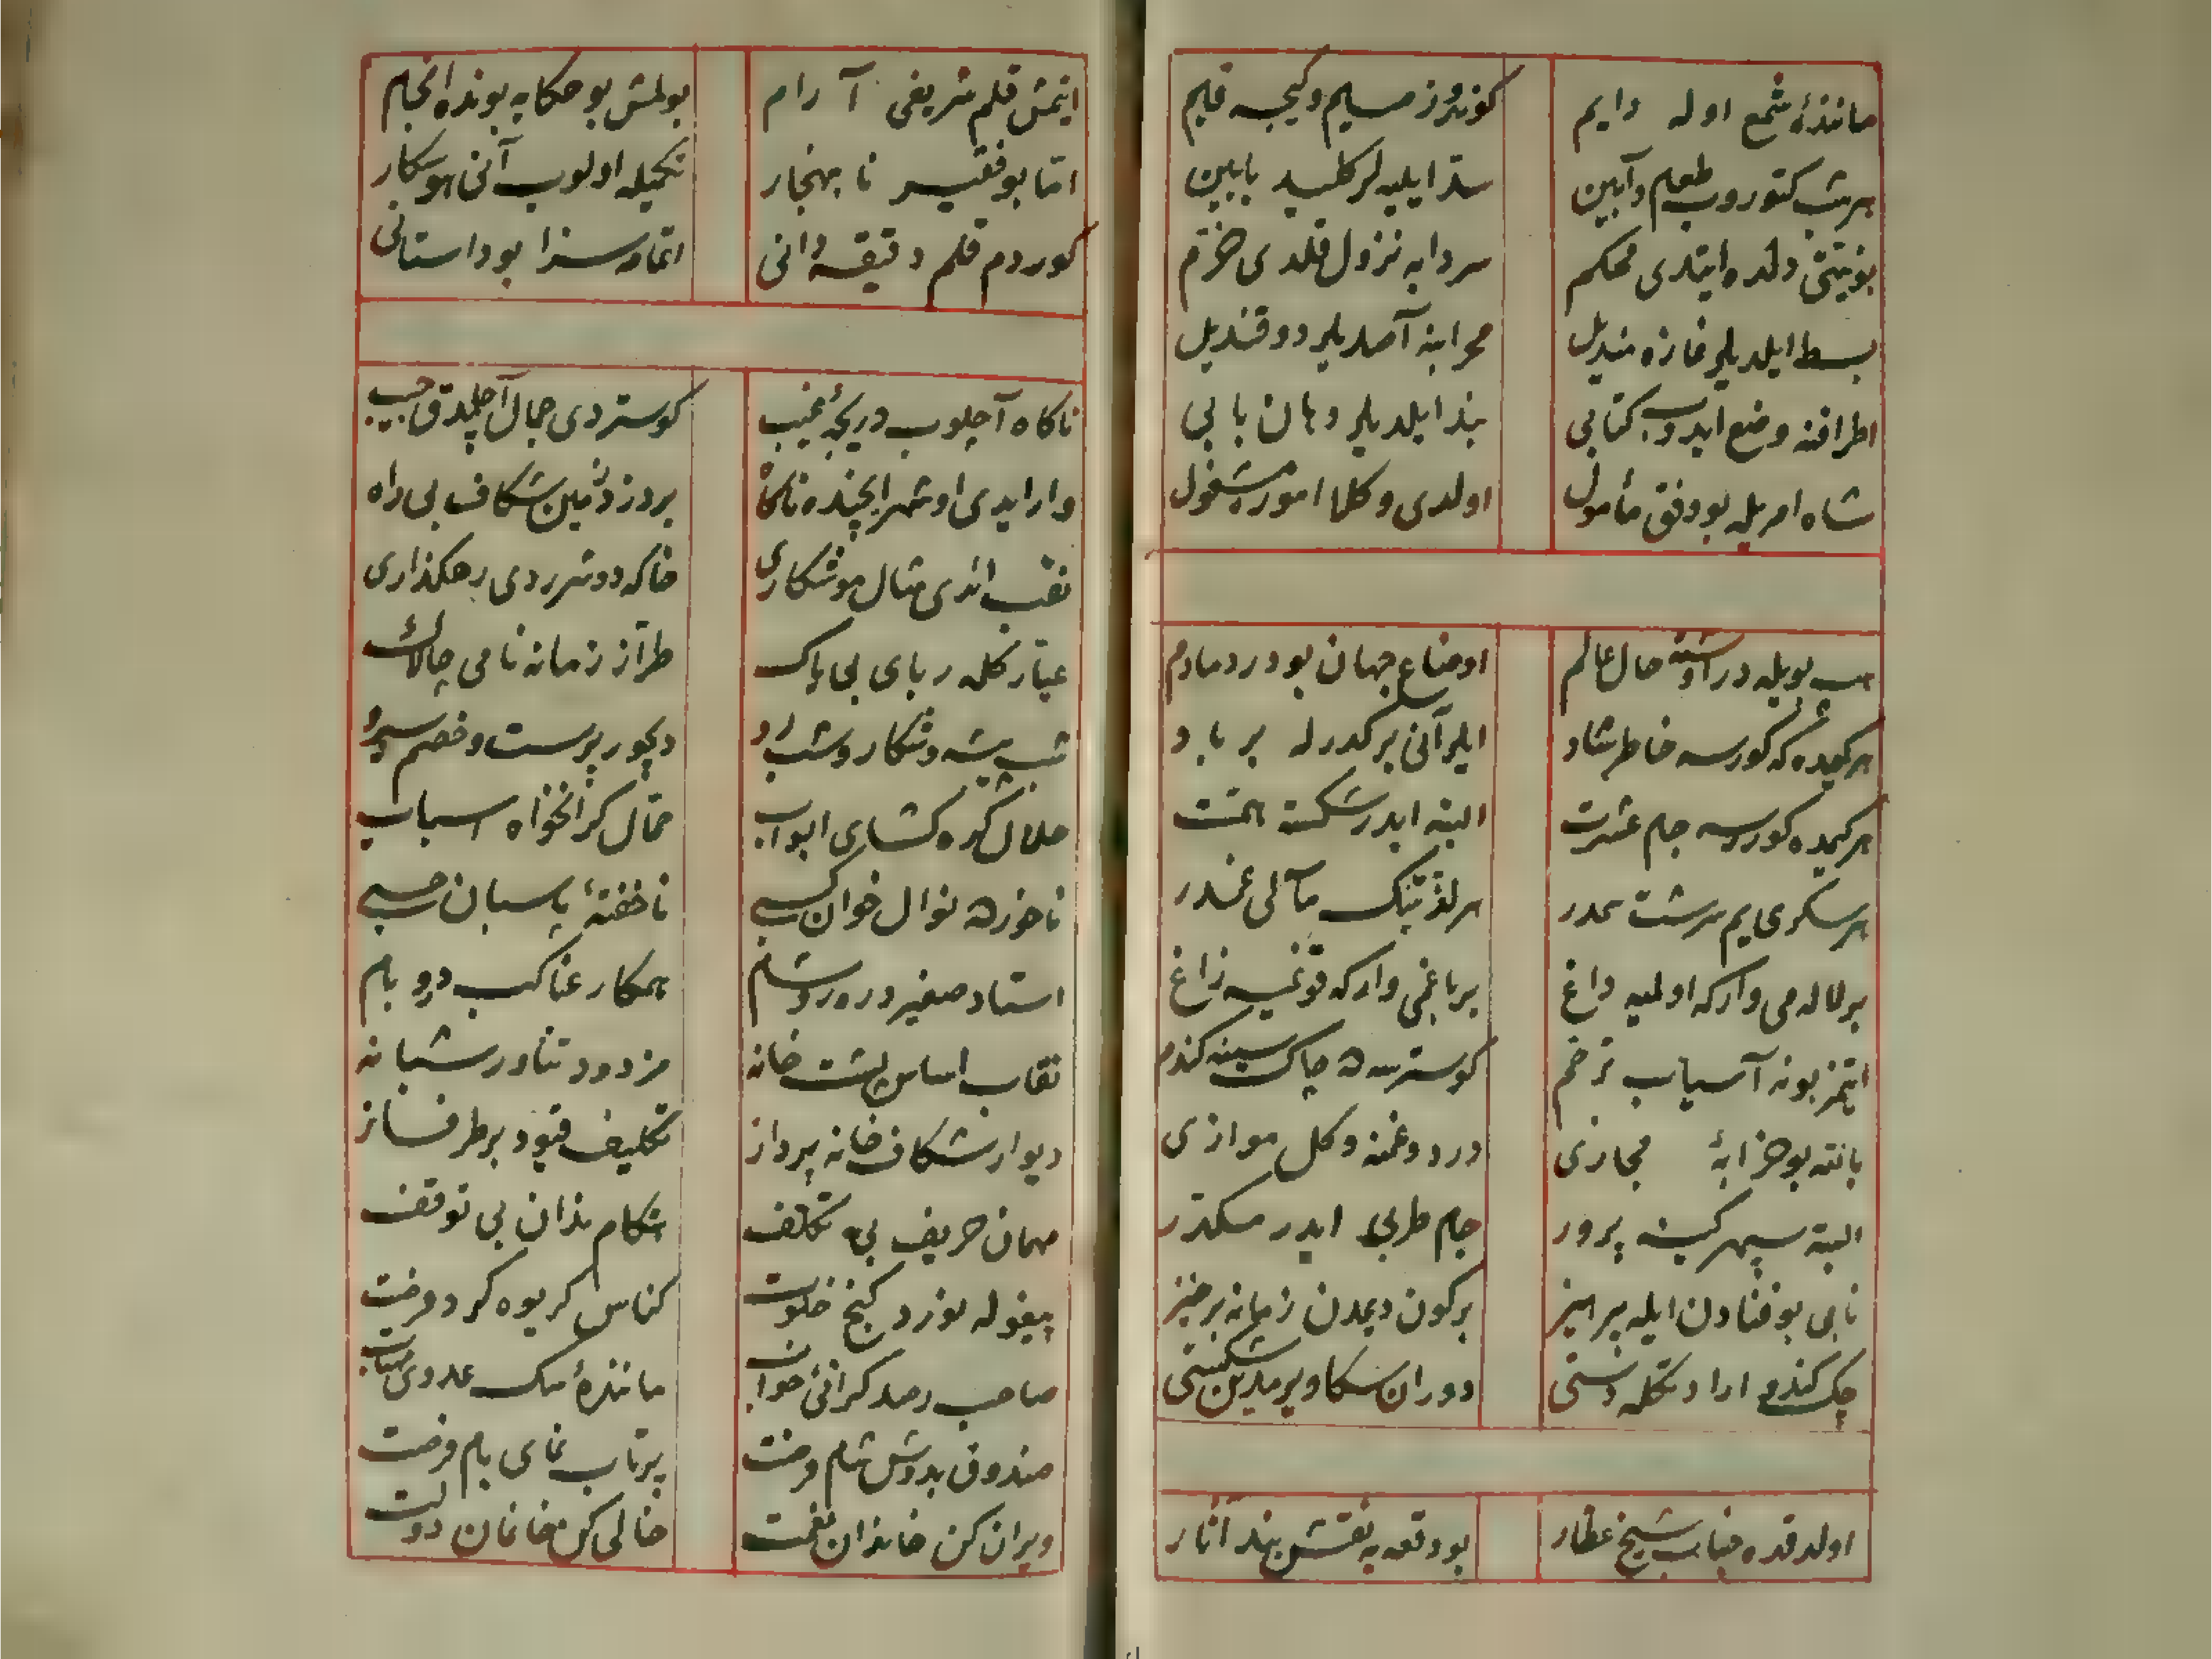 مانندۀ شمع اوله دایم
کوندوز مسیم و کیجه قایم
هر شب کتوروب طعام و آیین
سد ایلیه لر کلید بابین
بو نیتی دلده ایتدی محکم
سردابه نزول قلدی خرّم
بسط ایلدیلر نمازه مندیل
محرابنه آصدیلر دو قندیل
اطرافنه وضع ایدوب کتابی
بند ایلدیلر دهان بابی
شاه امریله بو وفق مأمول
اولدی وکلا اموره مشغول
هب بویله در اوشته حال عالم
اوضاع جهان بودر دمادم
هر کیمده که کورسه خاطر شاد
ایلر آنی بر کدرله بر باد
هر کیمده کورورسه جام عشرت
البته ایدر شکسته همت
هر سکری یم سرشت سمدر
هر لذتنک مآلی غمدر
بر لاله می وار که اولمیه داغ
بر باغمی وار که قونمیه زاغ
ایتمز بونه آسیاب ترخم
کوسترسه ده چاک سینه کندم
باننه بو خرابۀ مجازی
درد و غمنه وکل موازی
البته سپهر کینه پرور
جام طربی ایدر مکدّر
نابی بو فنادن ایله پرهیز
بر کون دیمدن زمانه برخیز
چک کندمی ارادتکله دستی
دوران سکا ویرمدین شکستی
اولدقده جناب شیخ عطار
بو وقعه یه نقش بند آثار
ایتمش قلم شریفی آرام
بولمش بو حکایه بونده انجام
امّا بو فقیر نابهنجار
تکمیله اولوب آنی هوسکار
کوردم قلم دقیقه دانی
اتمامه سزا بو داستانی
ناکاه آچلوب دریچۀ غیب
کوستردی جمال آچلدق جیب
وار ایدی او شهر ایچنده ناکاه
بر دزد زمین شکاف بی راه
نقب اندی مثال موشکاری
خاکه دوشردی رهکذاری
عیّار کله ربای بی باک
طرّار زمانه نامی چالاک
شب پیشه و شکار و شبرو
دیجور پرست و خصم پرتو
حلال کره کشای ابواب
حمّال کرانخواه اسباب
ناخورده نوال خوان کسبی
ناخفتۀ پاسبان حسبی
استاد صغیر در و روشام
همکار عناکب در و بام
نقاب اساس پشت خانه
مزدود تناور شبانه
دیوار شکاف خانه پرداز
تکلیف قیود بر طرف ساز
مهمان حریف بی تکلّف
هنکام ندان بی توقف
پیغوله نورد کنج خلوت
کناس کریوه کرد فرصت
صاحب رصد کرانئ خواب
مانندۀ سک عدوی مهتاب
صندوق بدوش شام فرصت
پرتاب نمای بام فرصت
ویران کن خاندان نعمت
خالی کن خانمان دولت